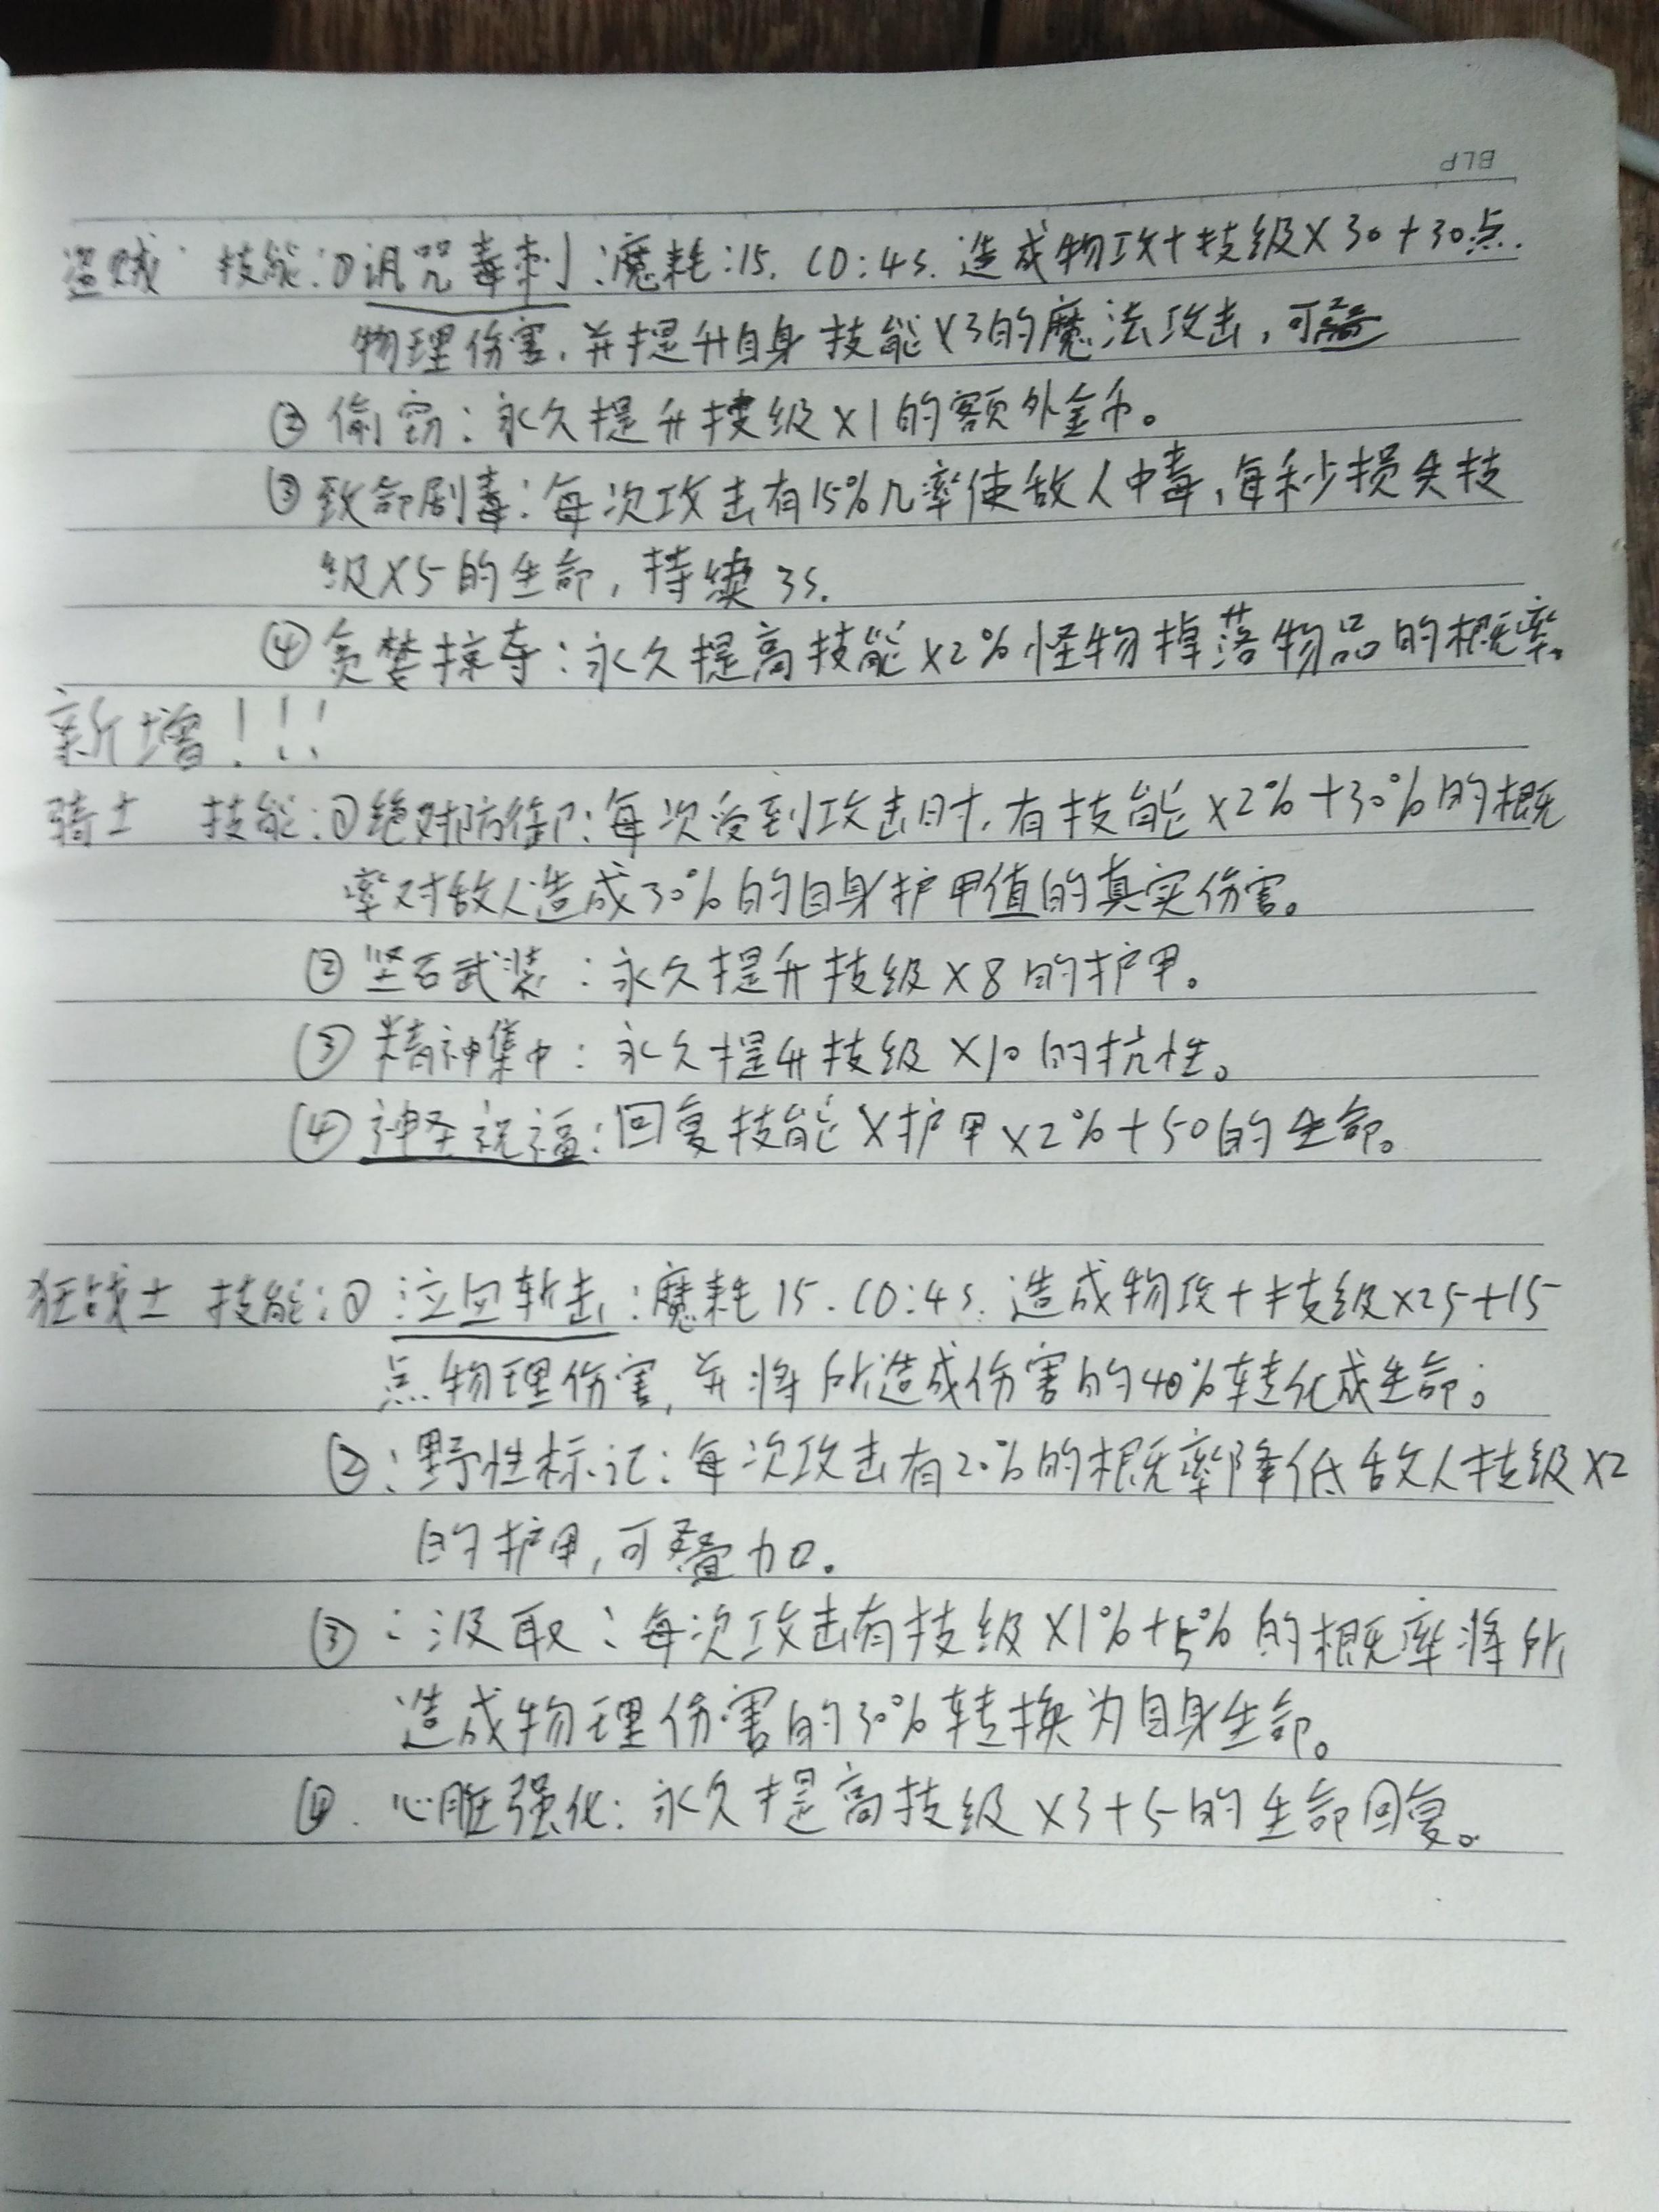 BLP
盗贼 技能:①诅咒毒刺:魔耗:15. CD:4s. 造成物攻+技级×30+30点
物理伤害,并提升自身技能×3的魔法攻击,可
② 偷窃:永久提升技级×1的额外金币。
③ 致命剧毒:每次攻击有15%几率使敌人中毒,每秒损失技
级×5的生命,持续3s.
④ 贪婪掠夺:永久提高技能×2%怪物掉落物品的概率。
新增!!!
骑士 技能:①绝对防御:每次受到攻击时,有技能×2%+30%的概
率对敌人造成30%的自身护甲值的真实伤害。
② 坚石武装:永久提升技级×8的护甲。
③ 精神集中:永久提升技级×10的抗性。
④ 神圣祝福:回复技能×护甲×2%+50的生命。
狂战士 技能:① 斩击:魔耗15. CD:4s. 造成物攻+技级×25+15
点物理伤害,并将所造成伤害的40%转化成生命;
②:野性标记:每次攻击有20%的概率降低敌人技级×2
的护甲,可叠加。
③:汲取:每次攻击有技级×1%+5%的概率将所
造成物理伤害的30%转换为自身生命。
④. 心脏强化:永久提高技级×3+5的生命回复。